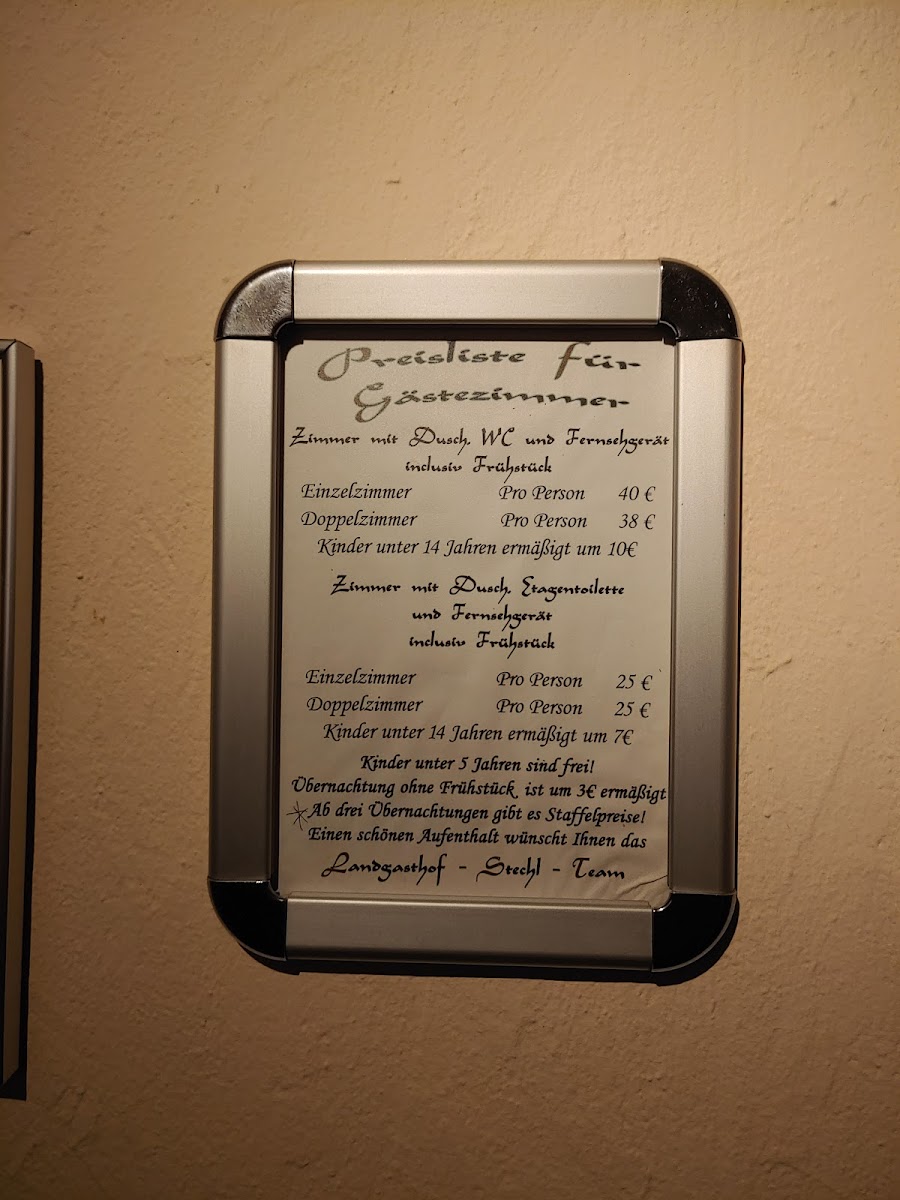 Preisliste für
Gästezimmer
Zimmer mit Dusch, WC und Fernsehgerät
inclusiv Frühstück
Einzelzimmer Pro Person 40 €
Doppelzimmer Pro Person 38 €
Kinder unter 14 Jahren ermäßigt um 10€
Zimmer mit Dusch, Etagentoilette
und Fernsehgerät
inclusiv Frühstück
Einzelzimmer Pro Person 25 €
Doppelzimmer Pro Person 25 €
Kinder unter 14 Jahren ermäßigt um 7€
Kinder unter 5 Jahren sind frei!
Übernachtung ohne Frühstück ist um 3€ ermäßigt
* Ab drei Übernachtungen gibt es Staffelpreise!
Einen schönen Aufenthalt wünscht Ihnen das
Landgasthof - Stechl - Team